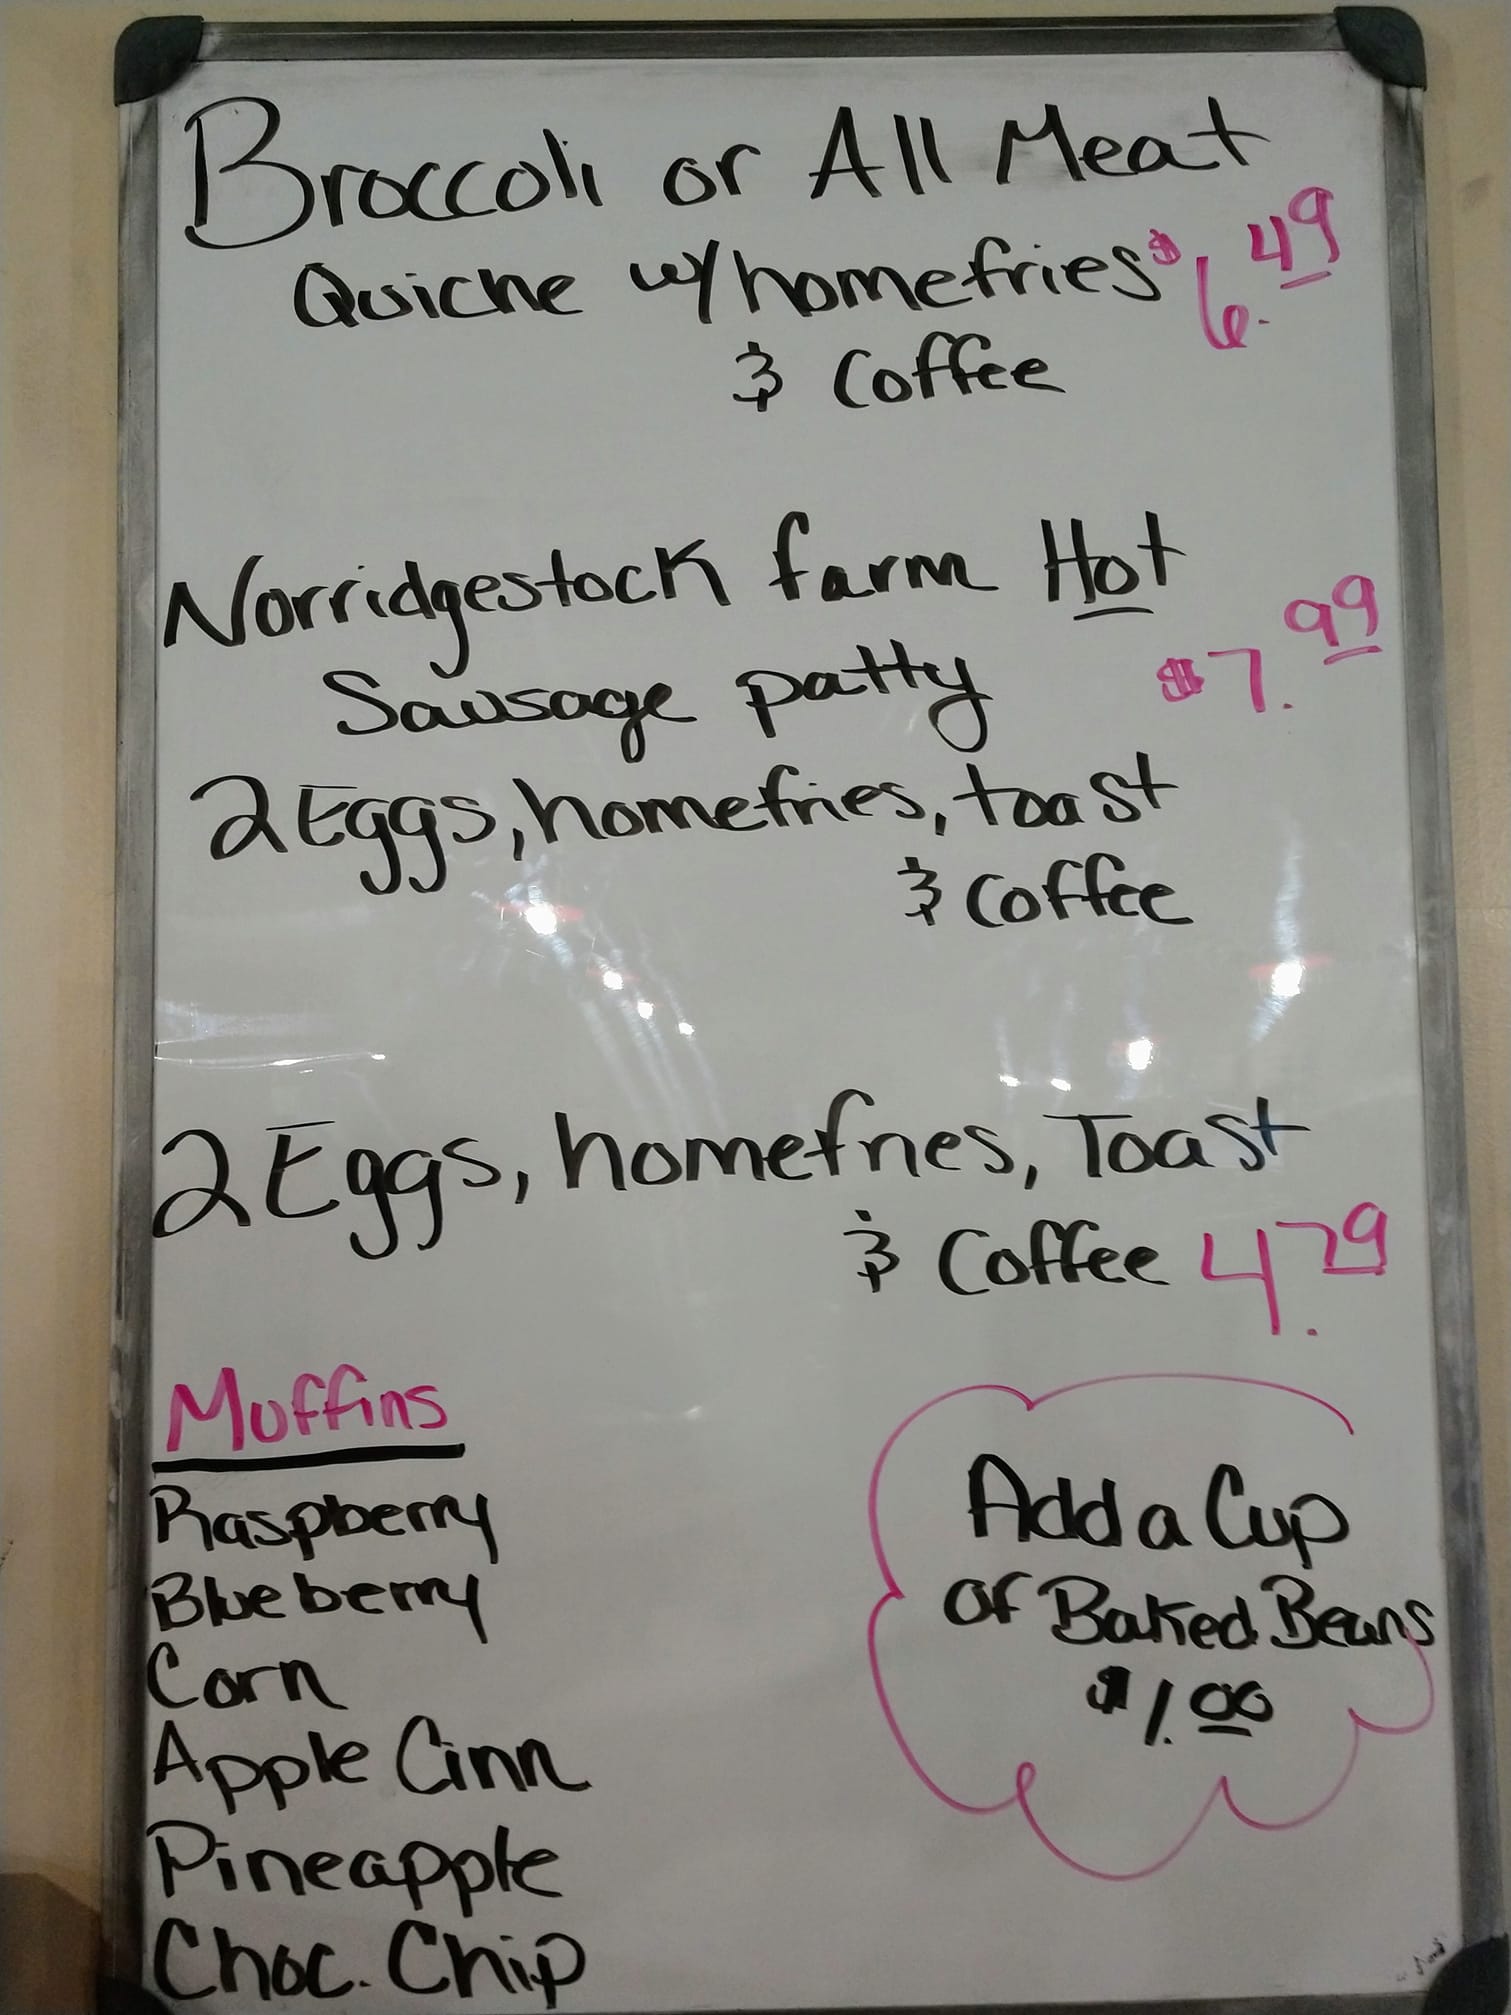 Broccoli or All Meat
Quiche w/homefries $6.49
& Coffee
Norridgestock farm Hot
Sausage patty $7.99
2 Eggs, homefries, toast
& Coffee
2 Eggs, homefries, Toast
& Coffee 4.79
Muffins
Raspberry
Blueberry
Corn
Apple Cinn
Pineapple
Choc. Chip
Add a Cup
of Baked Beans
$1.00